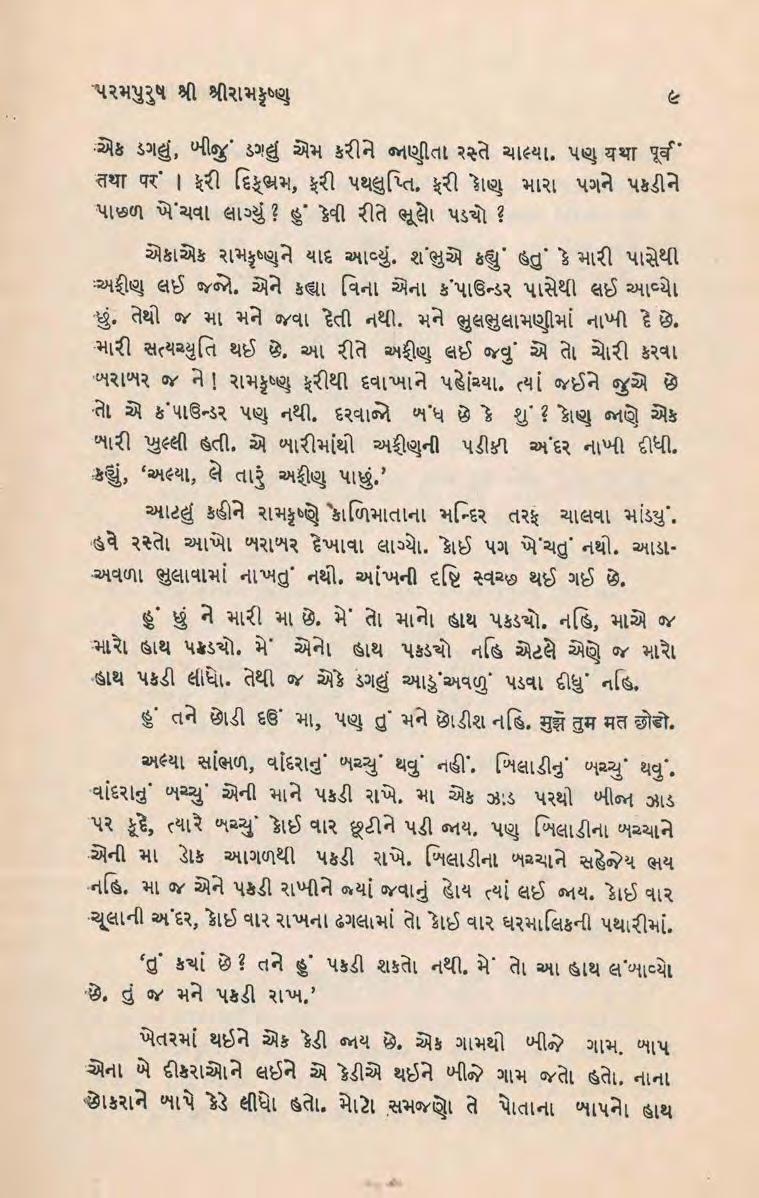 પરમપુરુષ શ્રી શ્રીરામકૃષ્ણ ૯
એક ડગલું, બીજું ડગલું એમ કરીને જાણીતા રસ્તે ચાલ્યા. પણ यथा पूर्वं
तथा परं । ફરી દિક્ભ્રમ, ફરી પથલુપ્તિ. ફરી કોણ મારા પગને પકડીને
પાછળ ખેંચવા લાગ્યું ? હું કેવી રીતે ભૂલો પડયો ?
એકાએક રામકૃષ્ણને યાદ આવ્યું. શંભુએ કહ્યું હતું કે મારી પાસેથી
અફીણ લઈ જજો. એને કહ્યા વિના એના કંપાઉન્ડર પાસેથી લઈ આવ્યો
છું. તેથી જ મા મને જવા દેતી નથી. મને ભુલભુલામણીમાં નાખી દે છે.
મારી સત્યચ્યુતિ થઈ છે. આ રીતે અફીણ લઈ જવું એ તો ચોરી કરવા
બરાબર જ ને ! રામકૃષ્ણ ફરીથી દવાખાને પહોંચ્યા. ત્યાં જઈને જુએ છે
તો એ કંપાઉન્ડર પણ નથી. દરવાજો બંધ છે કે શું ? કોણ જાણે એક
બારી ખુલ્લી હતી. એ બારીમાંથી અફીણની પડીકી અંદર નાખી દીધી.
કહ્યું, ‘અલ્યા, લે તારું અફીણ પાછું.’
આટલું કહીને રામકૃષ્ણે કાળિમાતાના મન્દિર તરફ ચાલવા માંડયું.
હવે રસ્તો આખો બરાબર દેખાવા લાગ્યો. કોઈ પગ ખેંચતું નથી. આડા-
અવળા ભુલાવામાં નાખતું નથી. આંખની દૃષ્ટિ સ્વચ્છ થઈ ગઈ છે.
હું છું ને મારી મા છે. મેં તો માનો હાથ પકડયો. નહિ, માએ જ
મારો હાથ પકડયો. મેં એનો હાથ પકડયો નહિ એટલે એણે જ મારો
હાથ પકડી લીધો. તેથી જ એકે ડગલું આડુંઅવળું પડવા દીધું નહિ.
હું તને છોડી દઉં મા, પણ તું મને છોડીશ નહિ. मुझे तुम मत छोडो.
અલ્યા સાંભળ, વાંદરાનું બચ્ચું થવું નહીં. બિલાડીનું બચ્ચું થવું.
વાંદરાનું બચ્ચું એની માને પકડી રાખે. મા એક ઝાડ પરથી બીજા ઝાડ
પર કૂદે, ત્યારે બચ્ચું કોઈ વાર છૂટીને પડી જાય. પણ બિલાડીના બચ્ચાને
એની મા ડોક આગળથી પકડી રાખે. બિલાડીના બચ્ચાને સહેજેય ભય
નહિ. મા જ એને પકડી રાખીને જ્યાં જવાનું હોય ત્યાં લઈ જાય. કોઈ વાર
ચૂલાની અંદર, કોઈ વાર રાખના ઢગલામાં તો કોઈ વાર ઘરમાલિકની પથારીમાં.
‘તું કયાં છે ? તને હું પકડી શકતો નથી. મેં તો આ હાથ લંબાવ્યો
છે. તું જ મને પકડી રાખ.’
ખેતરમાં થઈને એક કેડી જાય છે. એક ગામથી બીજે ગામ. બાપ
એના બે દીકરાઓને લઈને એ કેડીએ થઈને બીજે ગામ જતો હતો. નાના
છોકરાને બાપે કેડે લીધો હતો. મોટો સમજણો તે પોતાના બાપનો હાથ